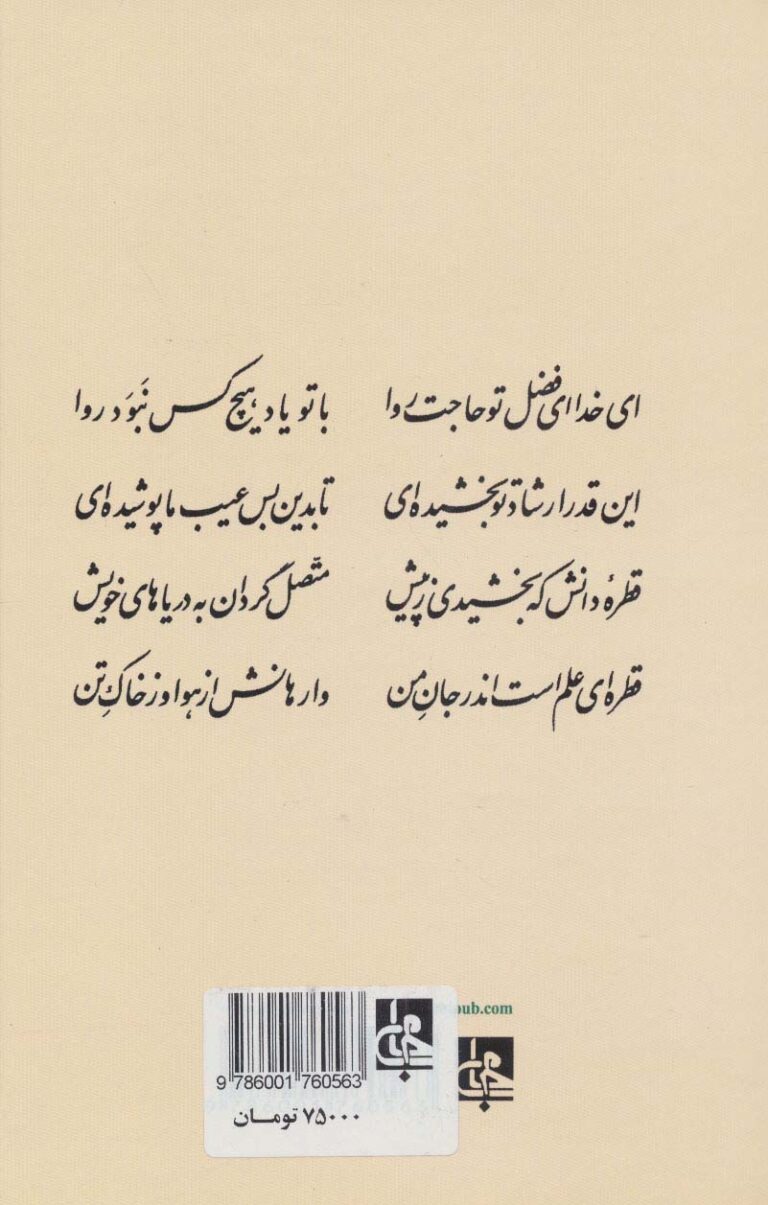 ای خدا ای فضل تو حاجت روا با تو یاد هیچ کس نَبوَد روا
این قدر ارشاد تو بخشیده‌ای تا بدین بس عیب ما پوشیده‌ای
قطرهٔ دانش که بخشیدی ز پیش متّصل گردان به دریاهای خویش
قطره‌ای علم است اندر جانِ من وارهانش از هوا وز خاکِ تن
ub.com
9 786001 760563
۷۵۰۰۰ تومـان